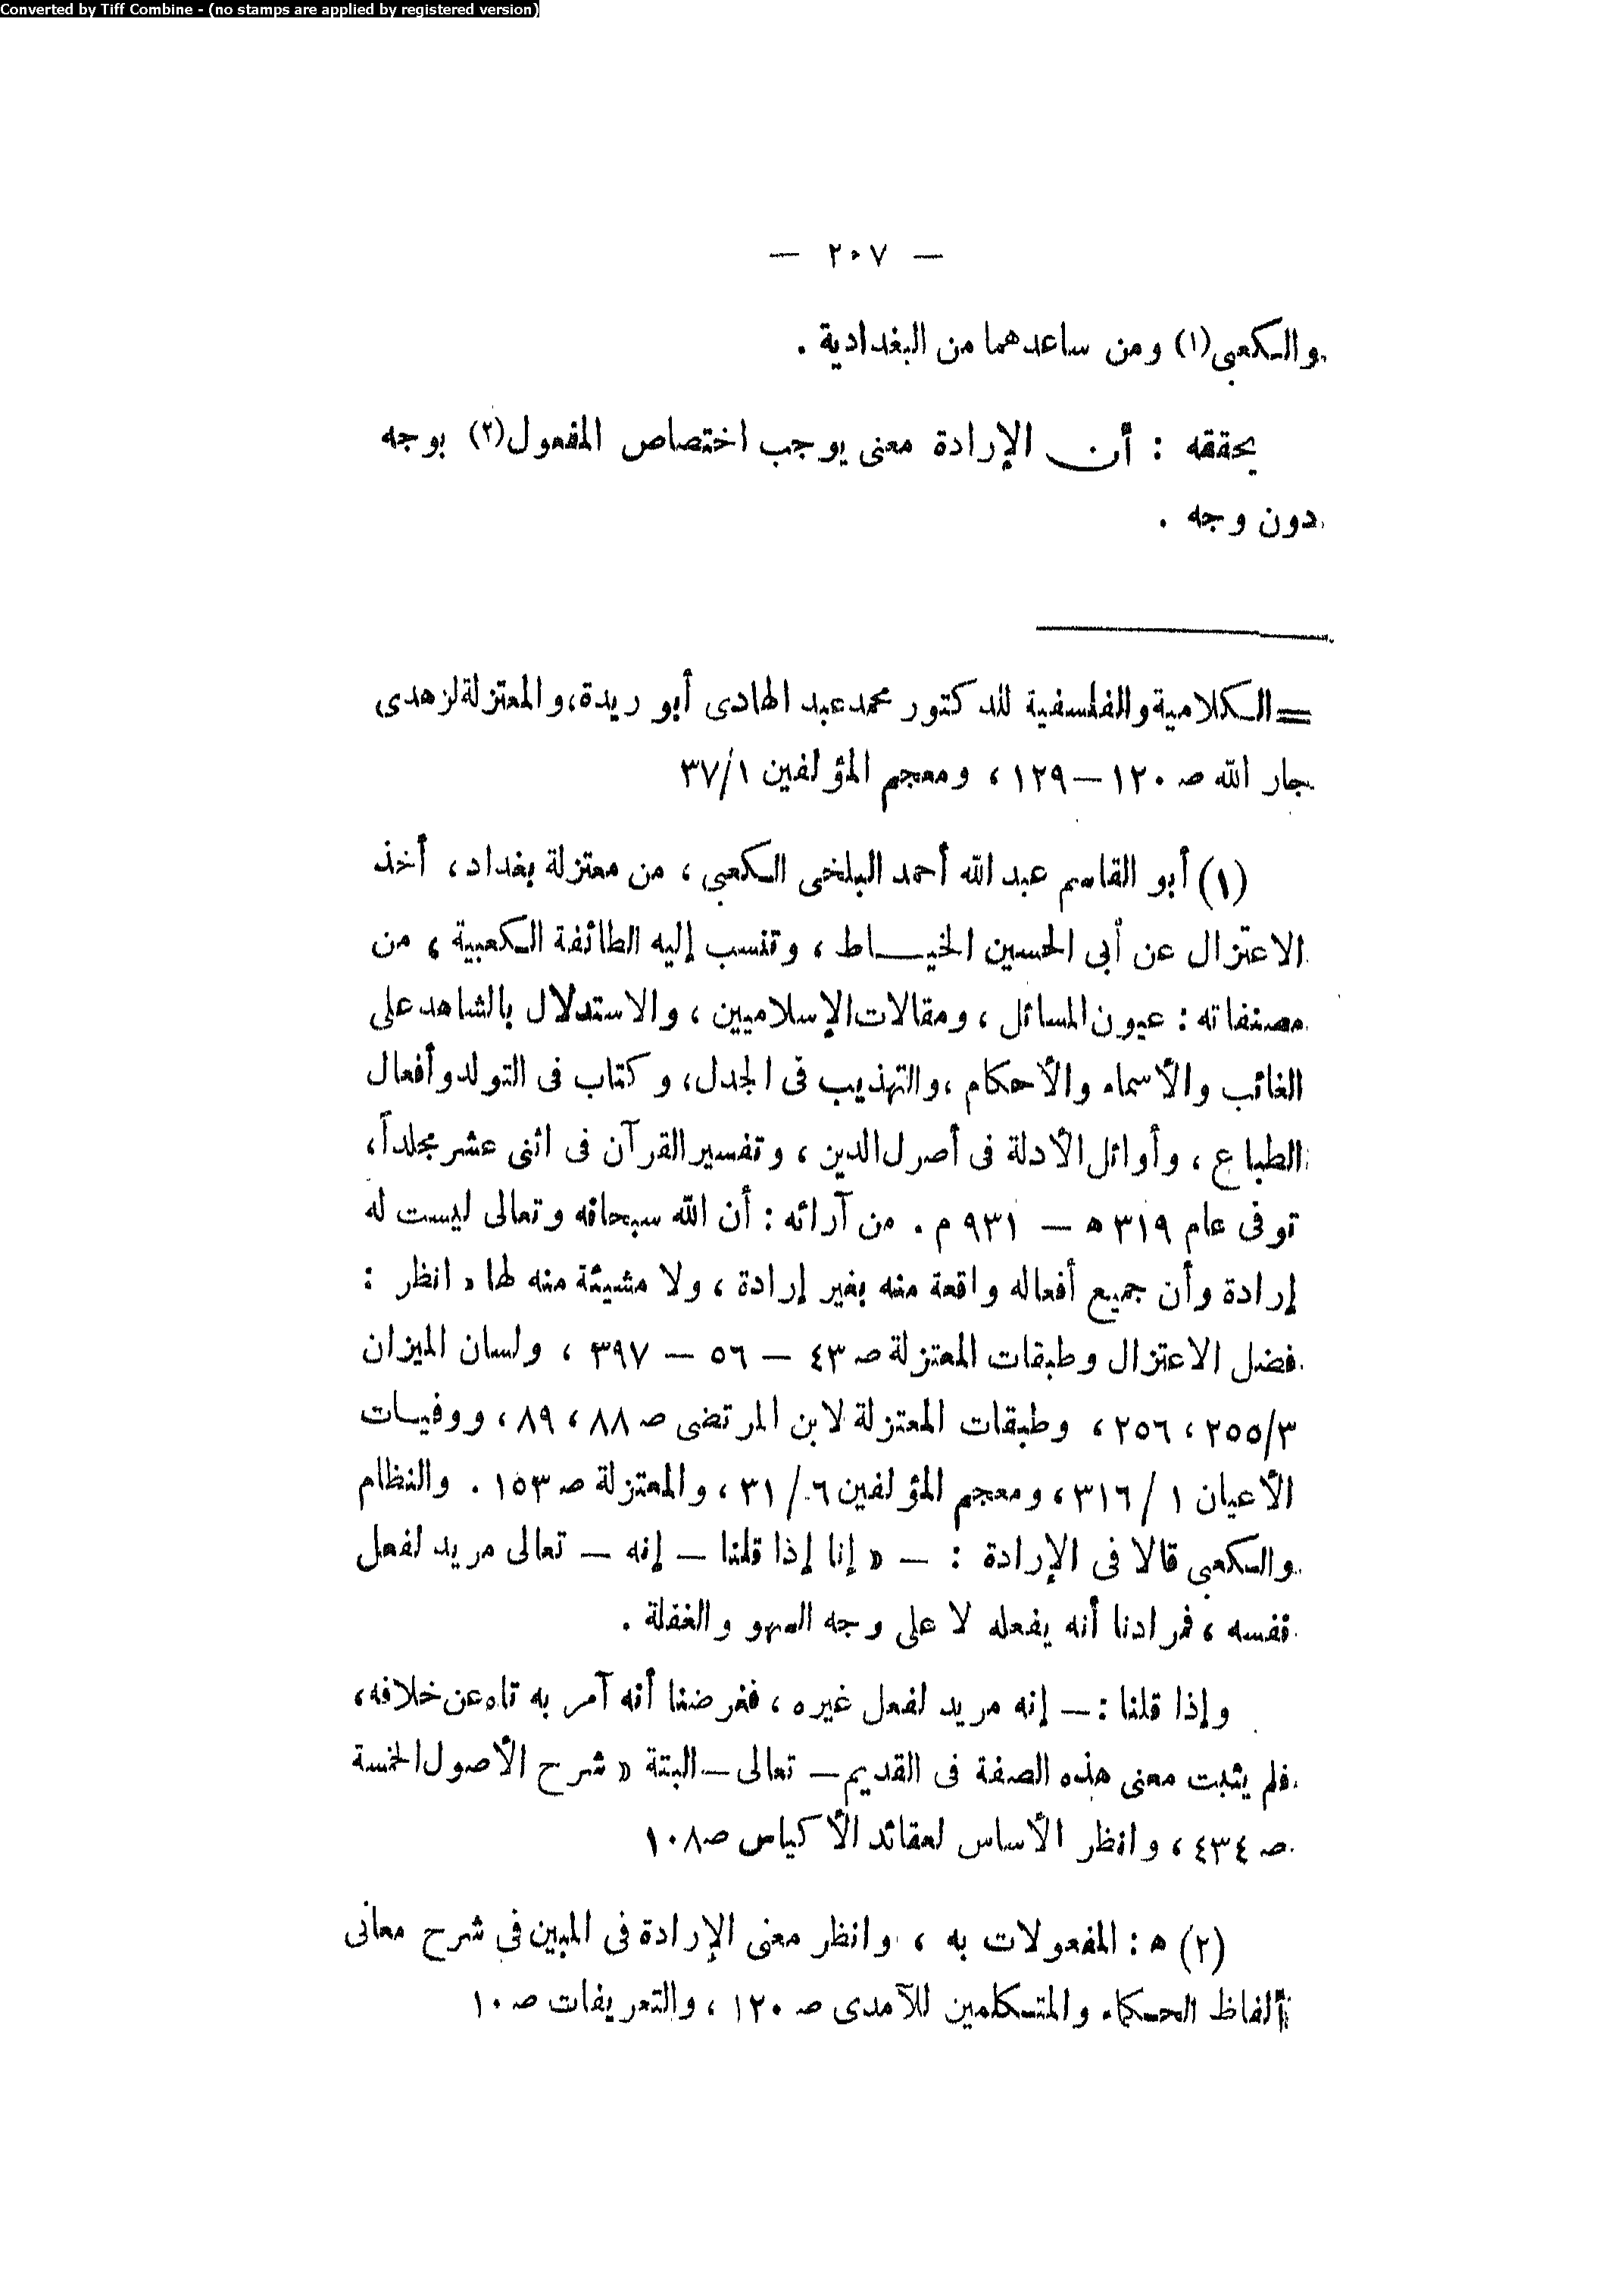 Converted by Tiff Combine - (no stamps are applied by registered version)
— ٢٠٧ —
والكعبى(١) ومن ساعدهما من البغدادية .
يحققه : أن الإرادة معنى يوجب اختصاص المفعول(٢) بوجه
دون وجه .
= الكلامية والفلسفية للدكتور محمد عبد الهادى أبو ريدة، والمعتزلة لزهدى
جار الله صـ ١٢٠ – ١٢٩ ، ومعجم المؤلفين ٣٧/١
(١) أبو القاسم عبد الله أحمد البلخى الكعبى ، من معتزلة بغداد ، أخذ
الاعتزال عن أبى الحسين الخيـاط ، وتنسب إليه الطائفة الكعبية ، من
مصنفاته : عيون المسائل ، ومقالات الإسلاميين ، والاستدلال بالشاهد على
الغائب والأسماء والأحكام ، والتهذيب فى الجدل، وكتاب فى التولد وأفعال
الطباع ، وأوائل الأدلة فى أصرل الدين ، وتفسير القرآن فى اثنى عشر مجلداً ،
توفى عام ٣١٩ هـ – ٩٣١ م . من آرائه : أن الله سبحانه وتعالى ليست له
إرادة وأن جميع أفعاله واقعة منه بغير إرادة ، ولا مشيئة منه لها « انظر :
فضل الاعتزال وطبقات المعتزلة صـ ٤٣ – ٥٦ – ٣٩٧ ، ولسان الميزان
٢٥٥/٣ ، ٢٥٦ ، وطبقات المعتزلة لابن المرتضى صـ ٨٨ ، ٨٩ ، ووفيات
الأعيان ١ / ٣١٦ ، ومعجم المؤلفين ٦ / ٣١ ، والمعتزلة صـ ١٥٣ . والنظام
والكعبى قالا فى الإرادة : – « إنا إذا قلنا – إنه – تعالى مريد لفعل
نفسه ، فمرادنا أنه يفعله لا على وجه السهو والغفلة .
وإذا قلنا : – إنه مريد لفعل غيره ، فغرضنا أنه آمر به ناه عن خلافه ،
فلم يثبت معنى هذه الصفة فى القديم – تعالى – البتة « شرح الأصول الخمسة
صـ ٤٣٤ ، وانظر الأساس لعقائد الأكياس صـ ١٠٨
(٢) هـ : المفعولات به ، وانظر معنى الإرادة فى المبين فى شرح معانى
ألفاظ الحكماء والمتكلمين للآمدى صـ ١٢٠ ، والتعريفات صـ ١٠